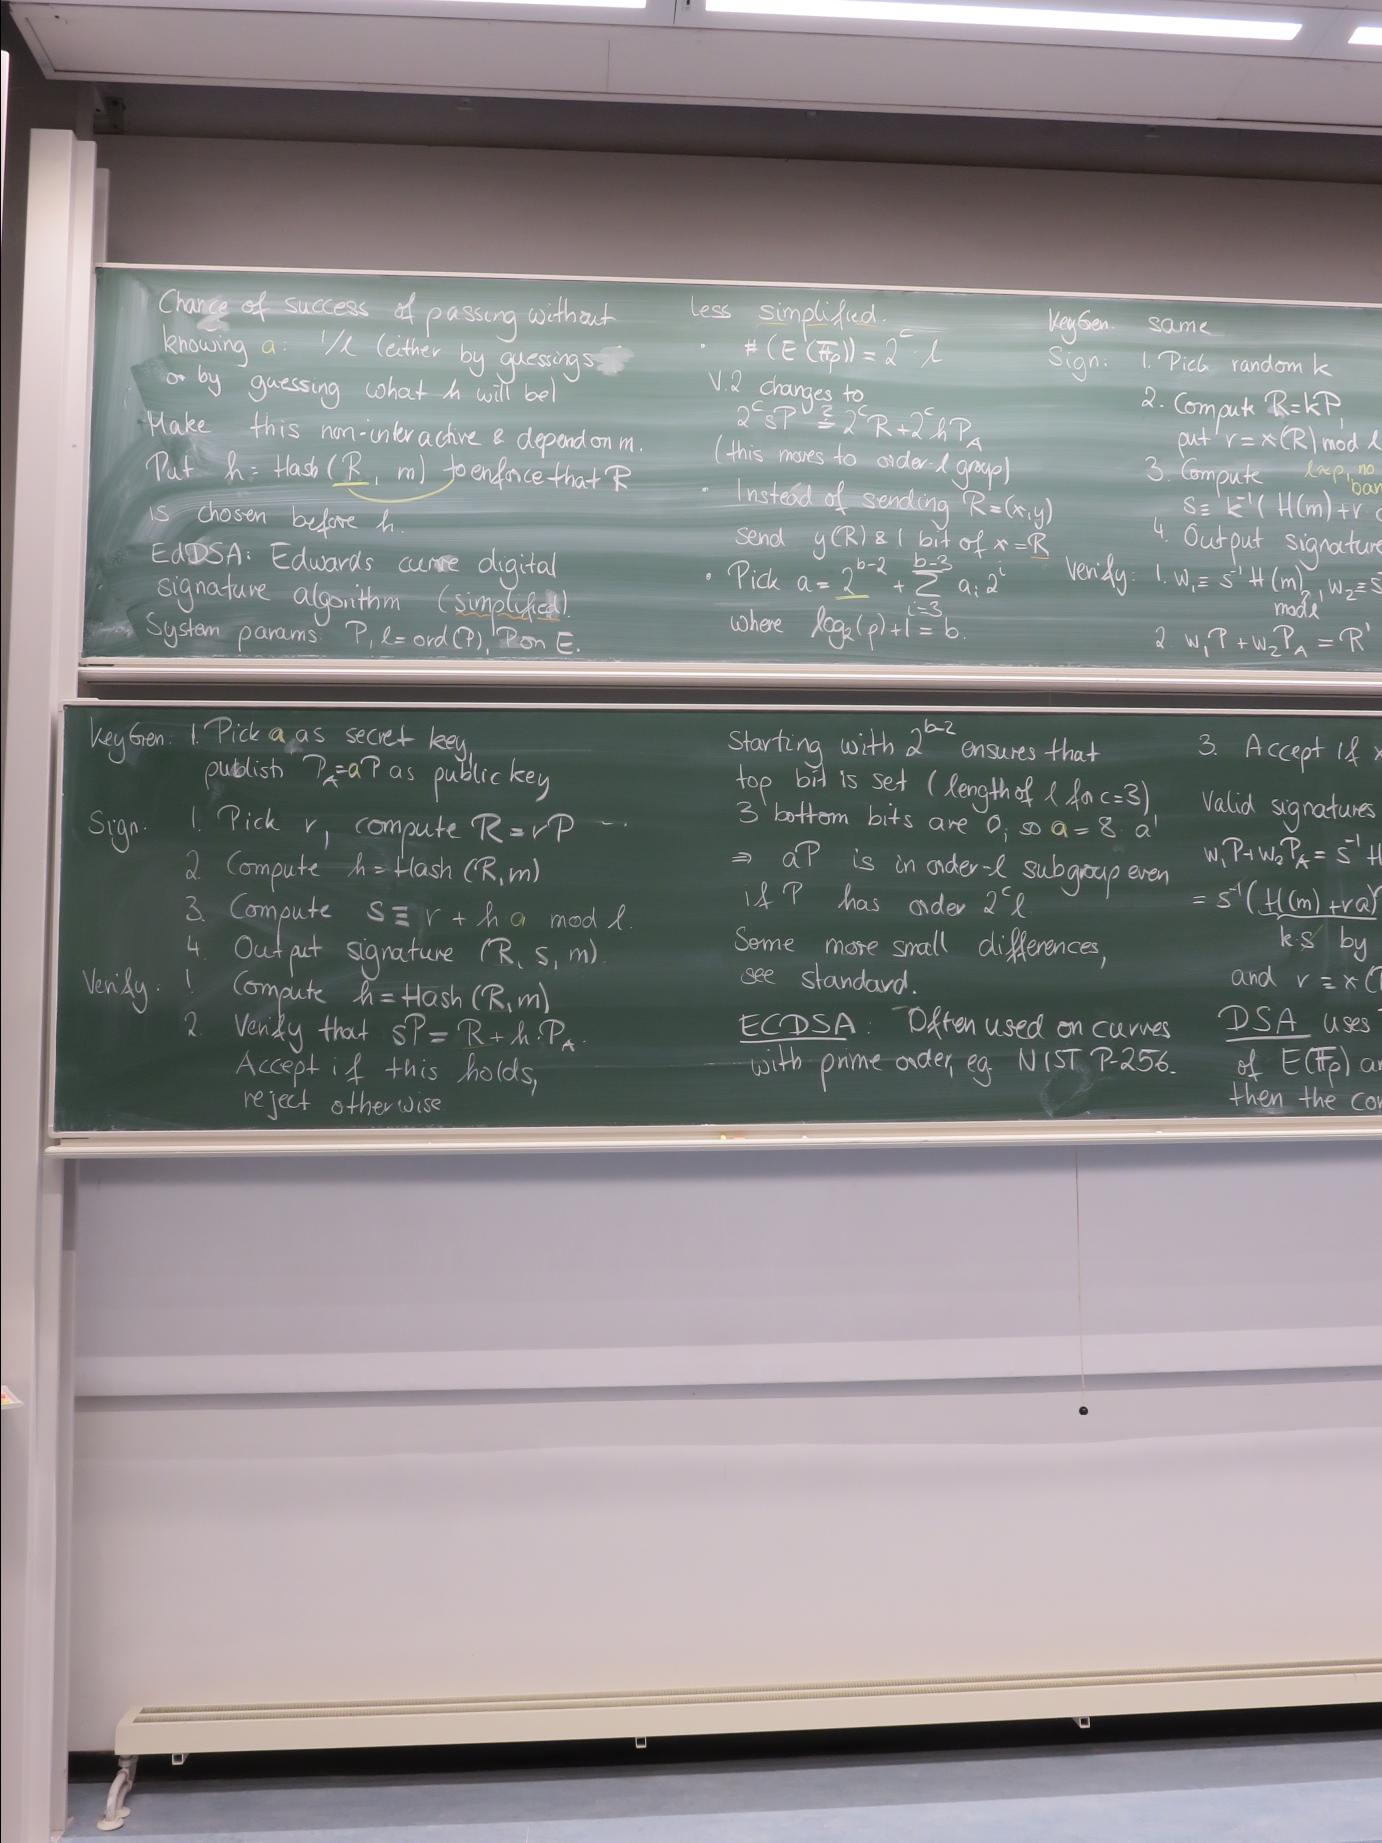 Chance of success of passing without
knowing a: 1/l (either by guessing s
or by guessing what h will be)
Make this non-interactive & depend on m.
Put h = Hash (R, m) to enforce that R
is chosen before h.
EdDSA: Edwards curve digital
signature algorithm (simplified)
System params: P, l = ord(P), P on E.
KeyGen: 1. Pick a as secret key,
publish P_A = aP as public key
Sign: 1. Pick r, compute R = rP
2. Compute h = Hash (R, m)
3. Compute s ≡ r + h a mod l.
4. Output signature (R, s, m).
Verify: 1. Compute h = Hash (R, m)
2. Verify that sP = R + h·P_A.
Accept if this holds,
reject otherwise
Less simplified.
· #(E(F_p)) = 2^c · l
V.2 changes to
2^c sP ≟ 2^c R + 2^c h P_A
(this moves to order-l group)
· Instead of sending R = (x, y)
send y(R) & 1 bit of x = R
· Pick a = 2^{b-2} + Σ_{i=3}^{b-3} a_i 2^i
where log_2(p) + 1 = b.
Starting with 2^{b-2} ensures that
top bit is set (length of l for c=3)
3 bottom bits are 0, so a = 8·a'
⇒ aP is in order-l subgroup even
if P has order 2^c l
Some more small differences,
see standard.
ECDSA: Often used on curves
with prime order, eg. NIST P-256.
KeyGen: same
Sign: 1. Pick random k
2. Compute R = kP,
put r = x(R) mod l
3. Compute no
s ≡ k^{-1}( H(m) + r
4. Output signature
Verify: 1. w_1 ≡ s^{-1} H(m), w_2 ≡ s
mod l
2. w_1 P + w_2 P_A = R'
3. Accept if x
Valid signatures
w_1 P + w_2 P_A = s^{-1} H
= s^{-1} (H(m) + ra)
k·s by
and r ≡ x(
DSA uses
of E(F_p)
then the